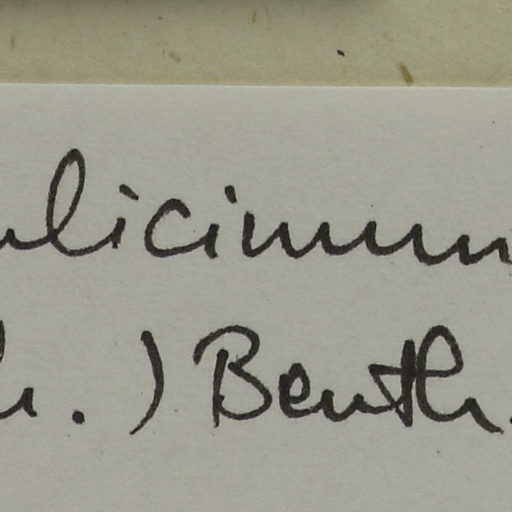 ulicinum
h.) Benth.